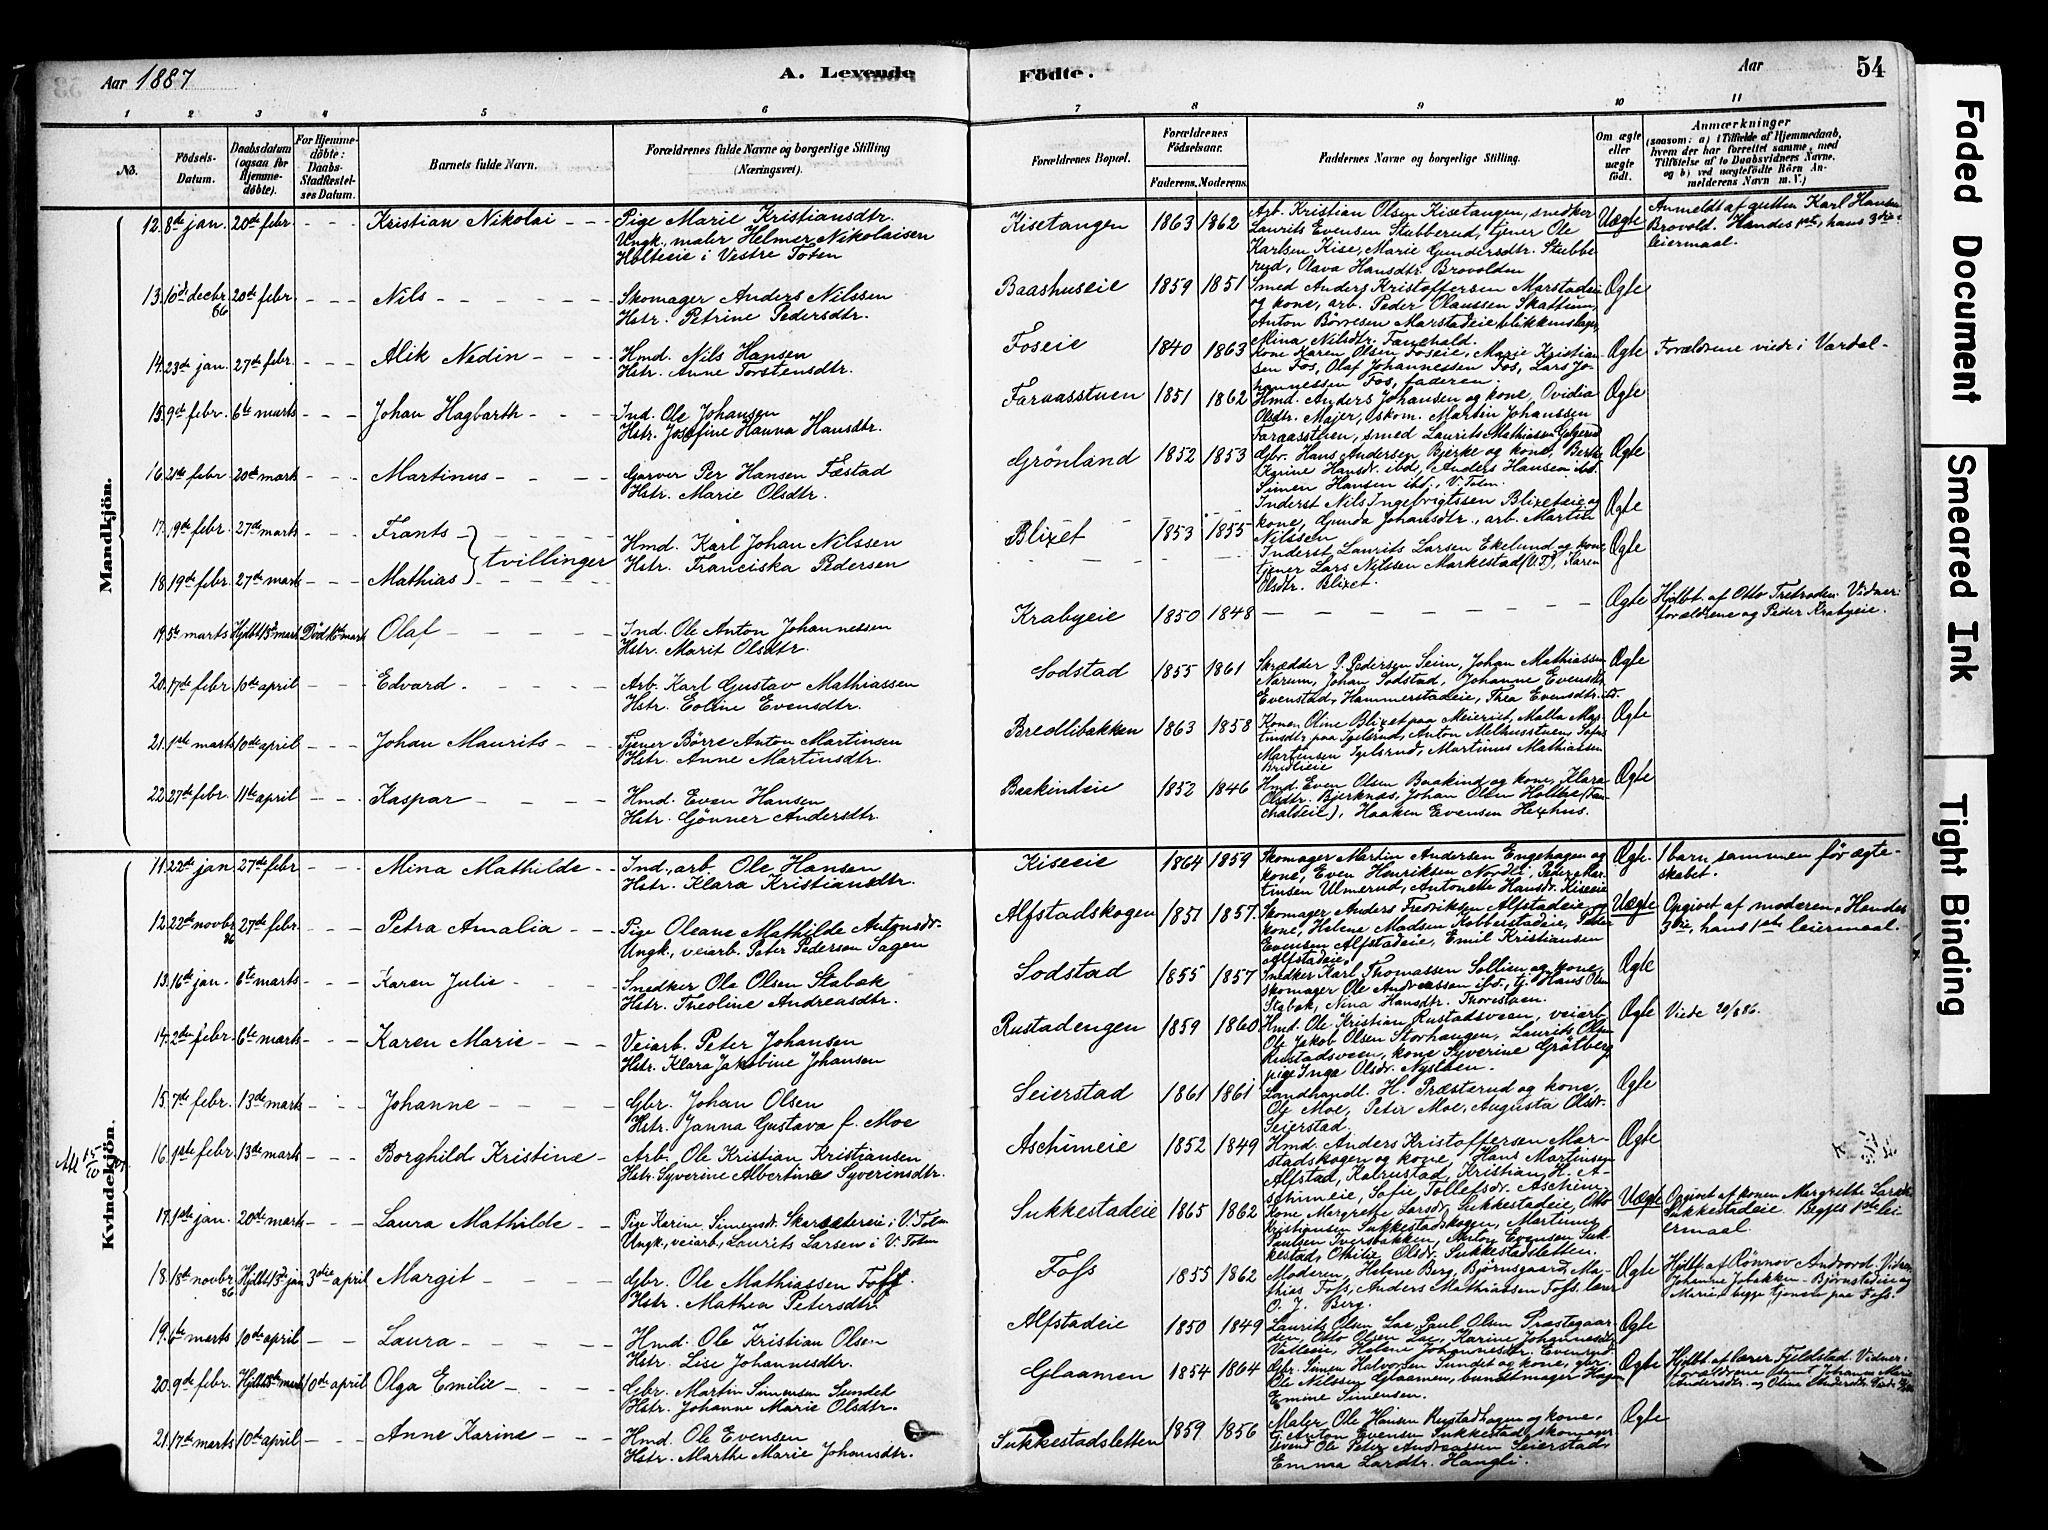 Aar 1887
A. Levende
Födte.
Aar
54
1 2 3 4 5 6 7 8 9 10 11
No.
Födsels-Datum.
Daabsdatum (ogsaa for Hjemme-döbte).
For Hjemme-döbte: Daabs-Stadfæstel-ses Datum.
Barnets fulde Navn.
Forældrenes fulde Navne og borgerlige Stilling (Næringsvei).
Forældrenes Bopæl.
Forældrenes Födselsaar.
Faderens. Moderens.
Faddernes Navne og borgerlige Stilling.
Om ægte eller uægte födt.
Anmærkninger
(saasom: a) i Tilfælde af Hjemmedaab, hvem der har forrettet samme, med Tilföielse af to Daabsvidners Navne, og b) ved uægtefödte Börn An-melderens Navn m. V.)
Mandkjön.
12. 8de jan. 20de febr. - - - Kristian Nikolai - - - Pige Marie Kristiansdtr. Kisetangen 1863 1862 Arb. Kristian Olsen Kisetangen, snedker Uægte Anmeldt af gutten Karl Hansen
Ungk., maler Helmer Nikolaisen Laurits Evensen Stubberud, tjener Ole Brovold. Hendes 1ste, hans 3die
Holteeie i Vestre Toten Karlsen Kise, Marie Gundersdtr. Stubbe- leiermaal.
rud, Olava Hansdtr. Brovolden
13. 10de decbr. 86 20de febr. - - - Nils - - - Skomager Anders Nilssen Baashuseie 1859 1851 Smed Anders Kristoffersen Marstadeie Ægte
Hstr. Petrine Pedersdtr. og kone, arb. Peder Olaussen Skattum,
Anton Börresen Marstadeie, blikkenslager
Mina Nilsdtr.
14. 23de jan. 27de febr. - - - Alik Nedin - - - Hmd. Nils Hansen Foseie 1840 1863 Kone Karen Olsen Foseie, Marie Kristian- Ægte Forældrene viede i Vardal -
Hstr. Anne Torstensdtr. sen Fos, Olaf Johannessen Fos, Lars Jo-
hannessen Fos, faderen.
15. 9de febr. 6te marts - - - Johan Hagbarth - - - Ind. Ole Johansen Faraasstuen 1851 1862 Hmd. Anders Johansen og kone, Ovidia Ægte
Hstr. Josefine Hanna Hansdtr. Olsdtr. Majer, skom. Martin Johanssen
Faraasstuen, smed Laurits Mathiassen
16. 21de febr. 20de marts - - - Martinus - - - Garver Per Hansen Fæstad Grönland 1852 1853 Gbr. Hans Andersen Bjerke og kone, Berthe Ægte
Hstr. Marie Olsdtr. Karine Hansdr. ibd., Anders Hansen ibd.
Simen Hansen ibd., V. Toten.
17. 19de febr. 27de marts - - - Frants } tvillinger Hmd. Karl Johan Nilssen Blixet 1853 1855 Inderst Nils Ingebrigtssen Blixeteie og Ægte
kone, Gunda Johansdtr., arb. Martin
Nilssen
18. 19de febr. 27de marts - - - Mathias Hstr. Franciska Pedersen Inderst Laurits Larsen Ekelund og kone Ægte
tjener Lars Nilssen Markestad (V.T.), Karen
Olsdtr. Blixet.
19. 5te marts Hjdbt. 15de marts Död 16de marts Olaf - - - Ind. Ole Anton Johannessen Krabyeie 1850 1848 - - - Ægte Hjdbt. af Otto Tretraden. Vidner:
Hstr. Marit Olsdtr. forældrene og Peder Krabyeie.
20. 17de febr. 10de april - - - Edvard - - - Arb. Karl Gustav Mathiassen Sodstad 1855 1861 Skrædder P. Pedersen Seim, Johan Mathiassen Ægte
Hstr. Eoline Evensdtr. Narum, Johan Sodstad, Johanne Evensdtr.
Evenstad, Hammerstadeie, Thea Evensdtr. ibd.
21. 1ste marts 10de april - - - Johan Maurits - - - Tjener Börre Anton Martinsen Bredlibakken 1863 1858 Konen Oline Blixet paa Meieriet, Malla Mar- Ægte
Hstr. Anne Martinsdtr. tinsdtr. paa Igelsrud, Anton Melhusstuen, Sofus
Martinsen Igelsrud, Martinus Mathiassen
Bredlieie
22. 27de febr. 11te april - - - Kaspar - - - Hmd. Even Hansen Baakindeie 1852 1846 Hmd. Even Olsen Baakind og kone, Klara Ægte
Hstr. Gönner Andersdtr. Olsdtr. Bjerknæs, Johan Olsen
Haaken Evensen Hexhus.
Kvindekjön.
11. 22de jan 27de febr. - - - Mina Mathilde - - Ind., arb. Ole Hansen Kiseeie 1864 1859 Skomager Martin Andersen Engehagen og Ægte 1 barn sammen för ægte-
Hstr. Klara Kristiansdtr. kone, Even Henriksen Nordli, Peter Mar- skabet.
tinsen Ulmerud, Antonette Hansdr. Kiseeie
12. 22de novbr. 86 27de febr. - - - Petra Amalia - - - Pige Oleane Mathilde Antonsdr. Alfstadskogen 1851 1857 Skomager Anders Fredriksen Alfstadeie og Uægte Opgivet af moderen. Hendes
Ungk., veiarb. Peter Pedersen Sagen kone, Helene Madsen Kobberstadeie, Peter 3die, hans 1ste leiermaal.
Evensen Alfstadeie, Emil Kristiansen
Alfstadeie.
13. 16de jan. 6te marts - - - Karen Julie - - - Snedker Ole Olsen Stabæk Sodstad 1855 1857 Snedker Karl Thomassen Sollien og kone, Ægte
Hstr. Theoline Andreasdtr. skomager Ole Andreassen ibd., tj. Hans Olsen
Stabæk, Nina Hansdtr. Thorestuen.
14. 2den febr. 6te marts - - - Karen Marie - - - Veiarb. Peter Johansen Rustadengen 1859 1860 Hmd. Ole Kristian Rustadsveen, veiarb. Ægte Viede 29/8 86.
Hstr. Klara Jakobine Johansen Ole Jakob Olsen Storhaugen, Laurits Olsen
Rustadsveen, kone Syverine Grötberg
pige Inga Olsdr. Nystuen.
15. 7de febr. 13de marts - - - Johanne - - - Gbr. Johan Olsen Seierstad 1861 1861 Landhandl. H. Præsterud og kone, Ægte
Hstr. Janna Gustava f. Moe Ole Moe, Peter Moe, Augusta Olsdr.
Seierstad.
16. 1ste febr. 13de marts - - - Borghild Kristine - Arb. Ole Kristian Kristiansen Aschimeie 1852 1849 Hmd. Anders Kristoffersen Mar- Ægte
Hstr. Syverine Albertine Syverinsdtr. stadskogen og kone, Hans Martinsen
Alfstad, Kalrustad, Kristian H. A-
schimeie, Sofie Tollefsdr. Aschim-
17. 1ste jan. 20de marts - - - Laura Mathilde - - Pige Karine Simensdr. Skarsætereie i V. Toten Sukkestadeie 1865 1862 Kone Mergrethe Larsdr. Sukkestadeie, Otto Uægte Opgivet af konen Mergrethe Larsdr.
Ungk., veiarb., Laurits Larsen i V. Toten Kristiansen Sukkestadskogen, Martinus Sukkestadeie. Begges 1ste lei-
Paulsen Iversbakken, Anton Evensen Suk- ermaal
kestad, Othilie Olsdr. Sukkestadsletten.
18. 18de novbr. 86 Hjdbt. 13de jan 3die april Margit - - - Gbr. Ole Mathiassen Foss. Foss 1855 1862 Moderen, Helene Berg, Björnsgaard, Ma- Ægte Hjdbt. af Rönnov Andrord. Vidner
Hstr. Mathea Petersdtr. thias Foss, Anders Mathiassen Foss, lærer Johanne Jobakken - Björnstadeie og
O. J. Berg. Marie, begge tjenere paa Foss.
19. 6te marts 10de april - - - Laura - - - Hmd. Ole Kristian Olsen Alfstadeie 1850 1849 Laurits Olsen Lae, Paul Olsen Præstegaar- Ægte
Hstr. Lise Johannesdtr. den, Otto Olsen Lae, Karine Johannesdtr.
Helene Johannesdtr. Evensrud.
20. 9de febr. Hjdbt. marts 10de april Olga Emilie - - - Gbr. Martin Simensen Sundet Glaamen 1854 1864 Gbr. Simen Halvorsen Sundet og kone, gbr. Ægte Hjdbt. af lærer Fjeldstad. Vidner:
Hstr. Johanne Marie Olsdtr. Ole Nilssen Glaamen, buntmager Hagen forældrene samt Johannes Marie
Emine Simensen. Andersdtr. og Oline Andersdtr.
21. 17de marts 10de april - - - Anne Karine - - - Hmd. Ole Evensen Sukkestadsletten 1859 1856 Maler Ole Hansen Rustadhagen og kone, Ægte
Hstr. Marthe Marie Johansdtr. tj. Anton Evensen Sukkestad, skomager
svend Ole Peter Andreassen Seierstad,
Emma Larsdtr. Haugli.
Att 15/10
Faded Document
Smeared Ink
Tight Binding